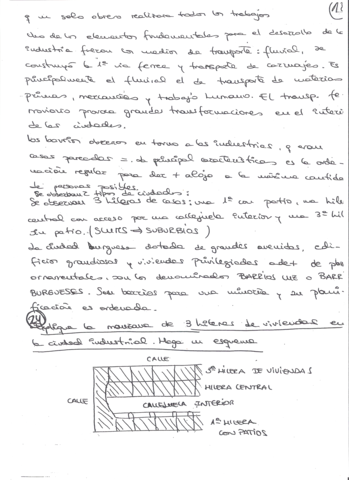 q un solo obrero realizara todos los trabajos
Uno de los elementos fundamentales para el desarrollo de la
industria fueron los medios de transporte: fluvial, se
construyó la 1ª vía ferrea y transporte de carruajes. Es
principalmente el fluvial el de transporte de materias
primas, mercancías y trabajo humano. EL transp. fe-
rroviario provoca grandes transformaciones en el interi
de las ciudades.
Los barrios obreros en torno a las industrias, q eran
casas pareadas =. La principal característica es la orde-
nación regular para dar + alojo a la máxima cantida
de personas posibles.
Se observan 3 hileras de casas: una 1ª con patio, una hile
central con acceso por una callejuela interior y una 3ª hil
sin patio. (SLUMS → SUBURBIOS)
La ciudad burguesa dotada de grandes avenidas, edi-
ficios grandiosos y viviendas privilegiadas
ornamentales. son los denominados BARRIOS
BURGUESES. Son barrios para una minoría y su plani-
ficación es ordenada.
24
Explique la manzana de 3 hileras de viviendas en
la ciudad industrial. Haga un esquema
CALLE
3ª HILERA DE VIVIENDAS
HILERA CENTRAL
CALLE
CALLEJUELA INTERIOR
1ª HILERA
CON PATIOS